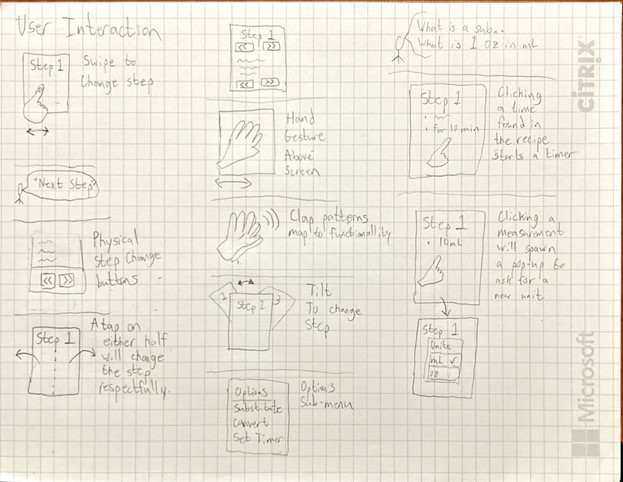 User Interaction
Step 1
Swipe to
Change step
"Next Step"
Physical
Step Change
buttons
<< >>
Step 1
A tap on
either half
will change
the step
respectfully.
Step 1
<< >>
<< >>
Hand
Gesture
Above
Screen
Clap patterns
map to functionality
1 Step 2 3
Tilt
To change
Step
Options
Substitute
Convert
Set Timer
Options
Sub-menu
What is a sub..
What is 1 oz in mL
Step 1
• for 10 min
Clicking
a time
found in
the recipe
starts a timer
Step 1
• 10mL
Clicking a
measurement
will spawn
a pop-up to
ask for a
new unit
Step 1
Units
mL ✓
oz
CITRIX
Microsoft